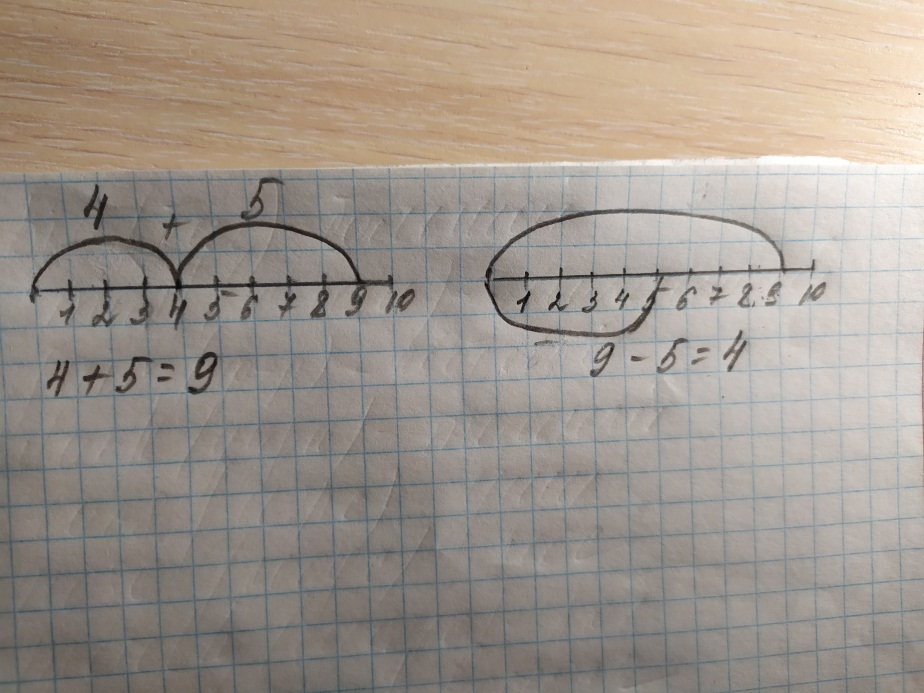 4 + 5
1 2 3 4 5 6 7 8 9 10
4 + 5 = 9
1 2 3 4 5 6 7 8 9 10
9 - 5 = 4